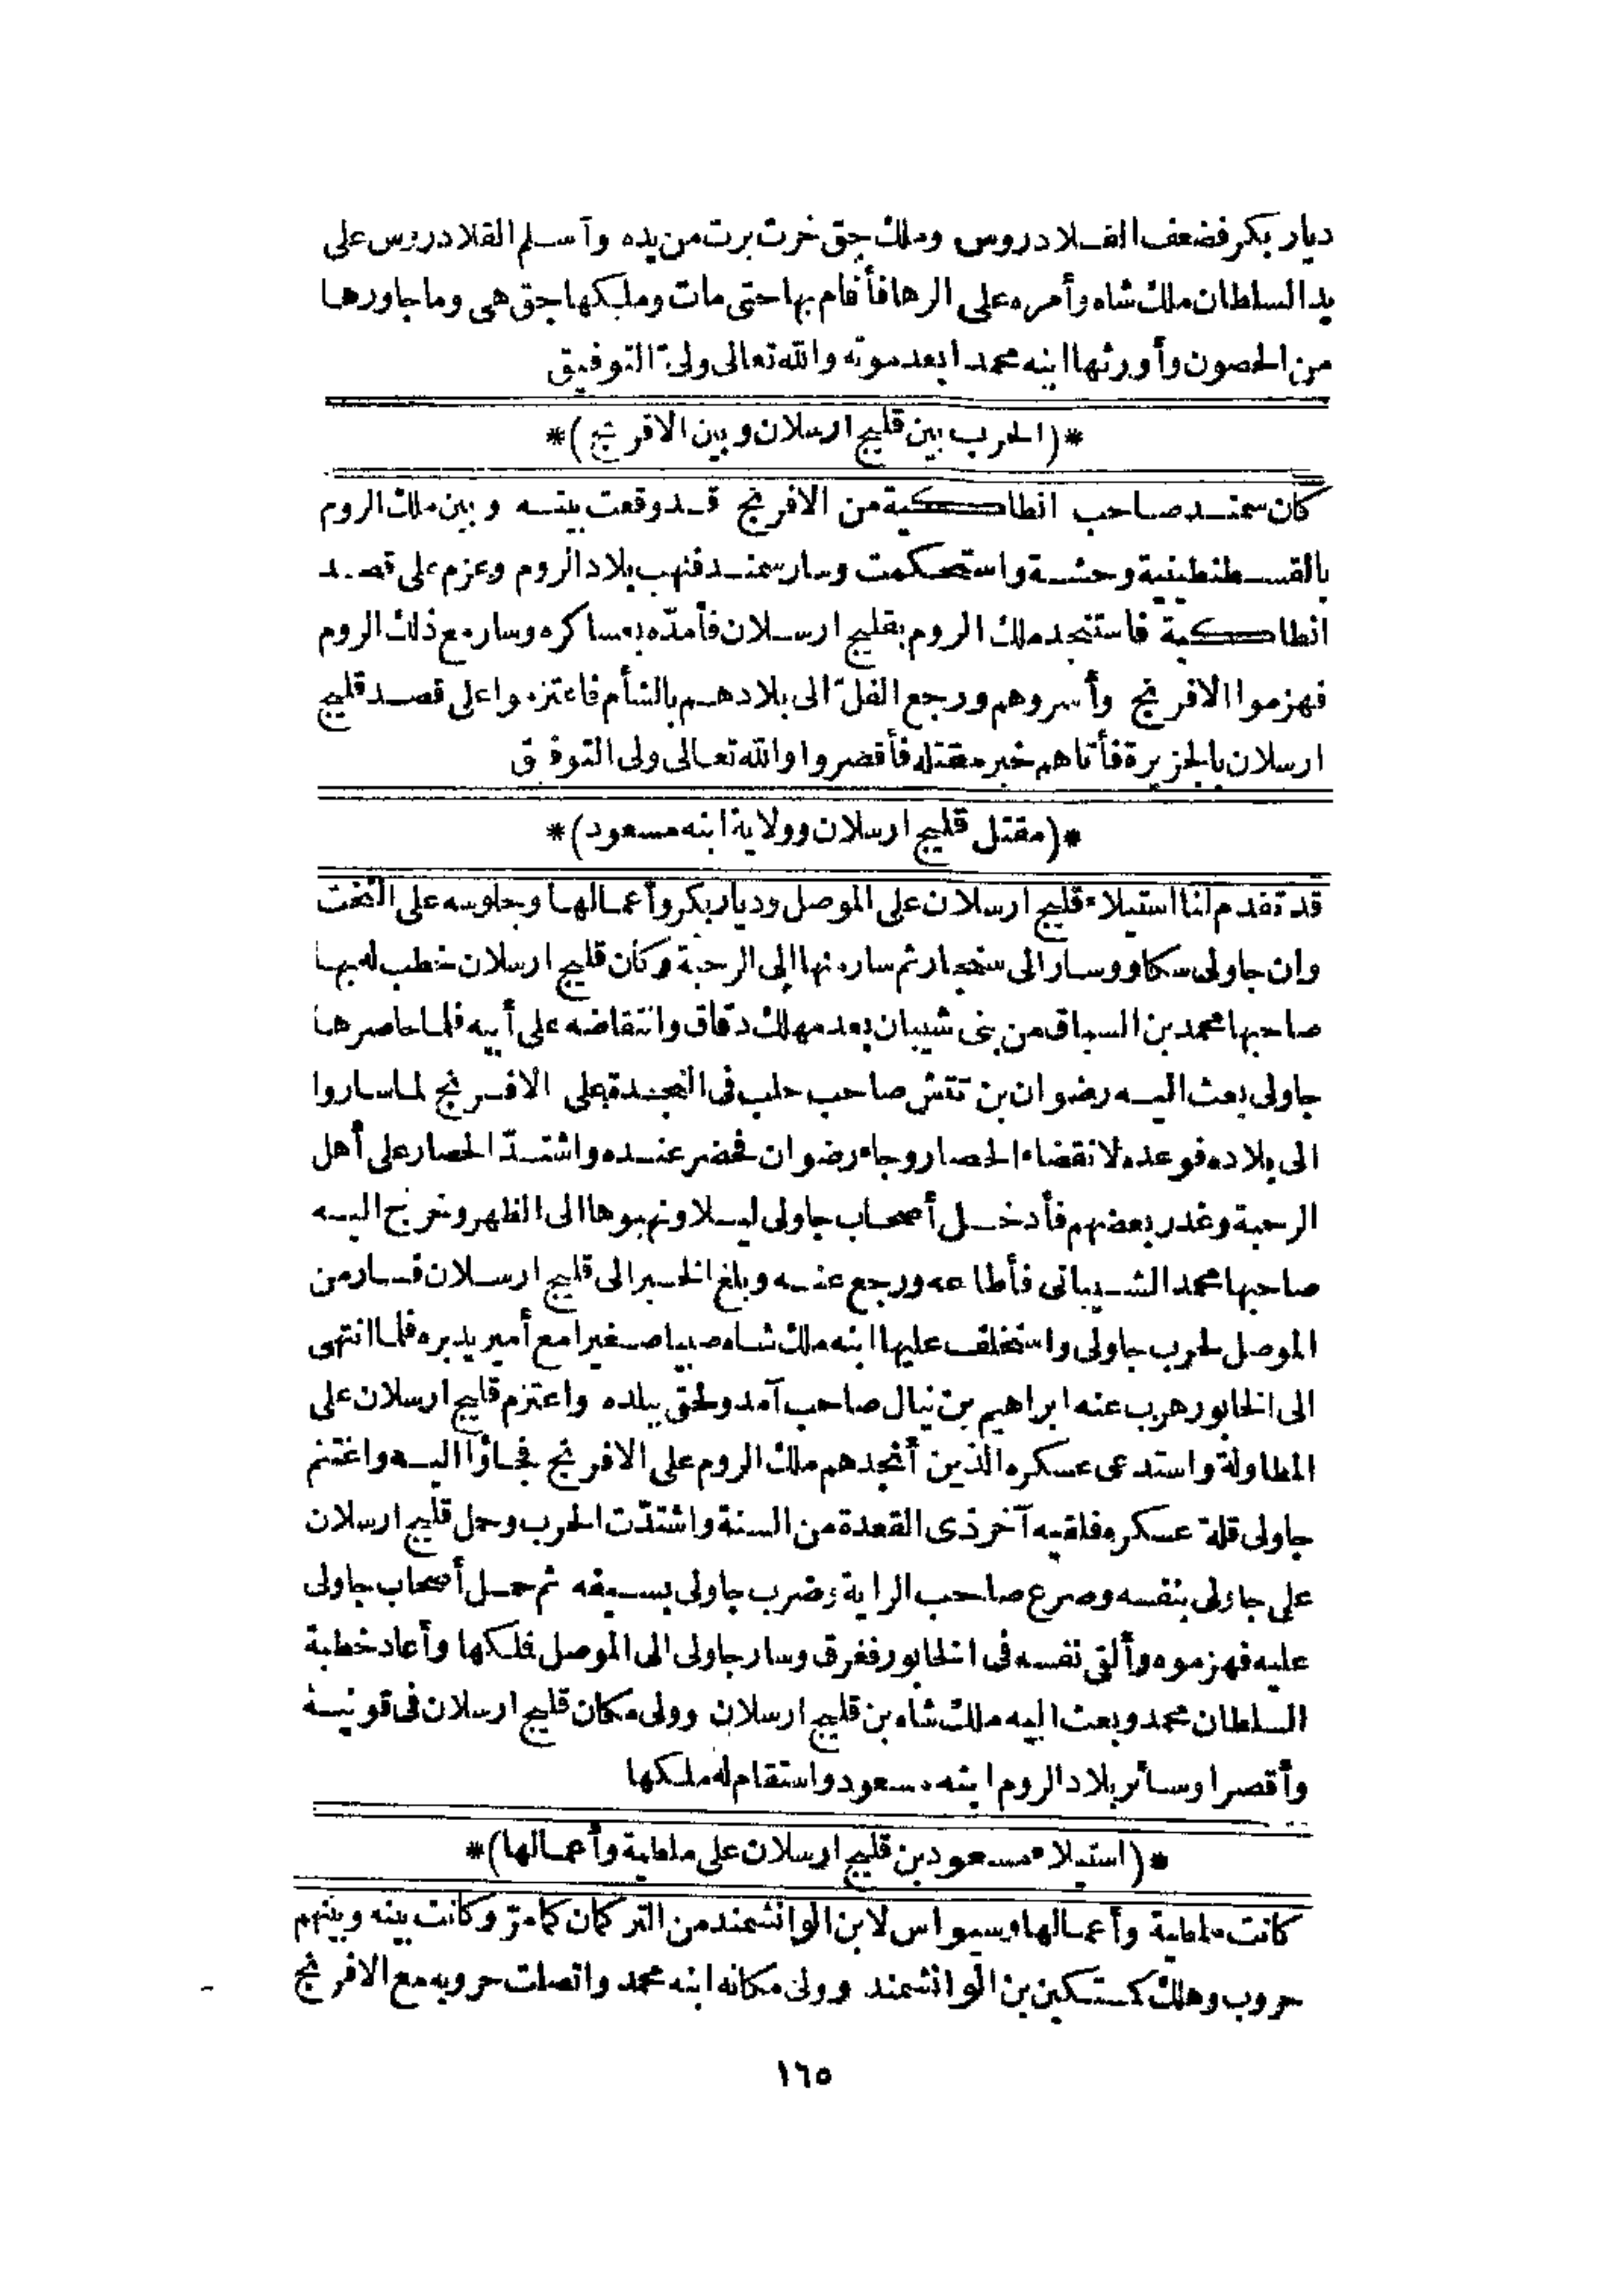 ديار بكر فضعف القلادروس وملك جق خرت برت من يده وأسلم القلادروس على
يد السلطان ملك شاه وأمره على الرها فأقام بها حتى مات وملكها جق هى وما جاورها
من الحصون وأورثها ابنه محمدا بعد موته والله تعالى ولىّ التوفيق
*(الحرب بين قليج ارسلان وبين الافرنج)*
كان سمند صاحب انطاكية من الافرنج قد وقعت بينه وبين ملك الروم
بالقسطنطينية وحشة واستحكمت وسار سمند فنهب بلاد الروم وعزم على قصد
انطاكية فاستنجد ملك الروم بقليج ارسلان فأمدّه بعساكره وسار مع ذلك الروم
فهزموا الافرنج وأسروهم ورجع الفلّ الى بلادهم بالشأم فاعتزموا على قصد قليج
ارسلان بالجزيرة فأتاهم خبر مقتله فأقصروا والله تعالى ولى التوفيق
*(مقتل قليج ارسلان وولاية ابنه مسعود)*
قد تقدم لنا استيلاء قليج ارسلان على الموصل وديار بكر وأعمالها وجلوسه على التخت
وان جاولى سكاو وسار الى سنجار ثم سار منها إلى الرحبة وكان قليج ارسلان خطب له بها
صاحبها محمد بن السباق من بنى شيبان بعد مهلك دقاق وانتقاضه على أبيه فلما حاصرها
جاولى بعث اليه رضوان بن تتش صاحب حلب فى النجدة على الافرنج لما ساروا
الى بلاده فوعده لانقضاء الحصار وجاء رضوان فحضر عنده واشتدّ الحصار على أهل
الرحبة وغدر بعضهم فأدخل أصحاب جاولى ليلا ونهبوها الى الظهر وخرج اليه
صاحبها محمد الشيبانى فأطاعه ورجع عنه وبلغ الخبر الى قليج ارسلان فسار من
الموصل لحرب جاولى واستخلف عليها ابنه ملك شاه صبيا صغيرا مع أمير يدبره فلما انتهى
الى الخابور هرب عنه ابراهيم بن نيال صاحب آمد ولحق ببلده واعتزم قليج ارسلان على
المطاولة واستدعى عسكره الذين أنجدهم ملك الروم على الافرنج فجاؤا اليه واغتنم
جاولى قلة عسكره فلقيه آخر ذى القعدة من السنة واشتدّت الحرب وحمل قليج ارسلان
على جاولى بنفسه وصرع صاحب الراية وضرب جاولى بسيفه ثم حمل أصحاب جاولى
عليه فهزموه وألقى نفسه فى الخابور فغرق وسار جاولى الى الموصل فملكها وأعاد خطبة
السلطان محمد وبعث اليه ملك شاه بن قليج ارسلان وولى مكان قليج ارسلان فى قونية
وأقصرا وسائر بلاد الروم ابنه مسعود واستقام له ملكها
*(استيلاء مسعود بن قليج ارسلان على ملطية وأعمالها)*
كانت ملطية وأعمالها وسيواس لابن الوانشمند من التركمان كما مرّ وكانت بينه وبينهم
حروب وهلك كمستكين بن الوانشمند وولى مكانه ابنه محمد واتصلت حروبه مع الافرنج
١٦٥